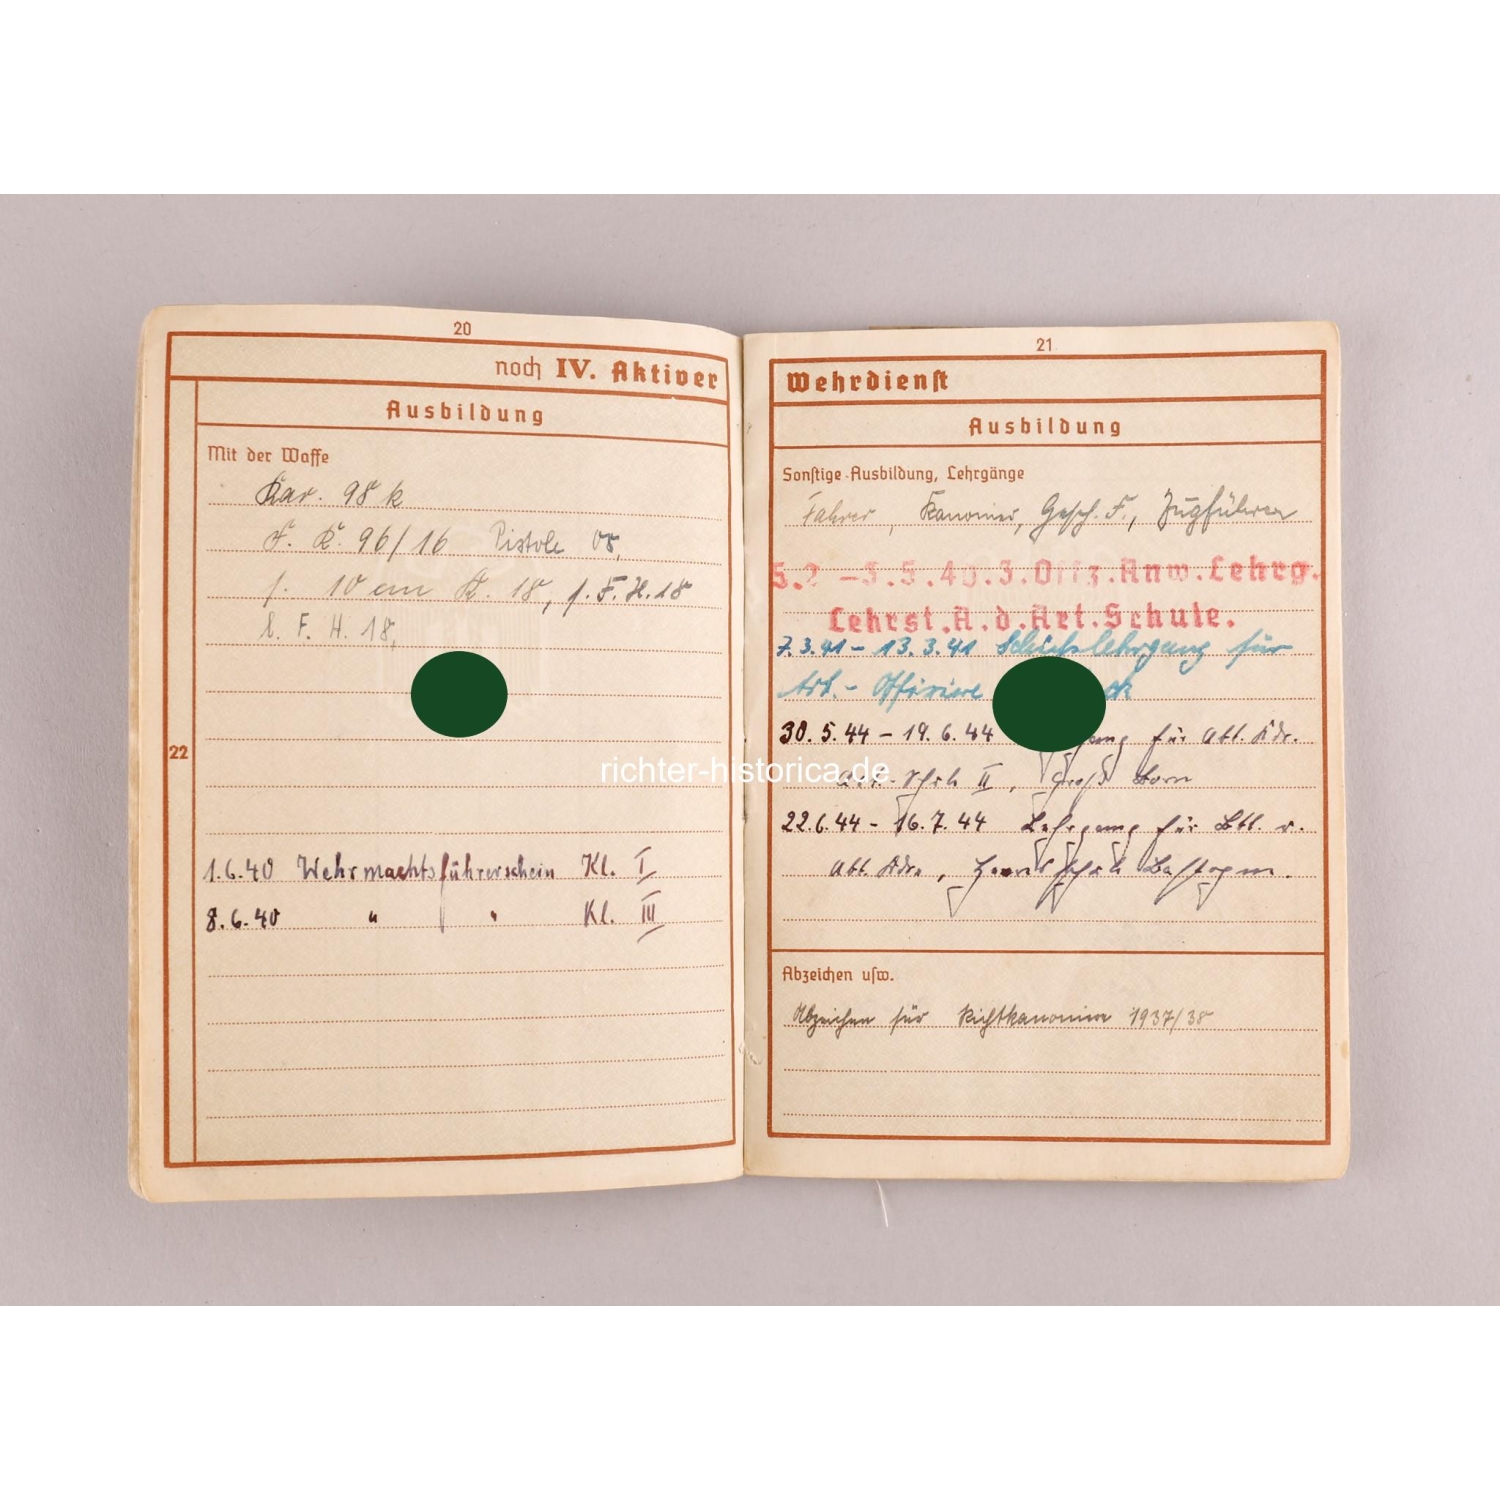 20
noch IV. Aktiver
Ausbildung
Mit der Waffe
Kar. 98 k
F. K. 96/16 Pistole 08,
s. 10 cm K. 18, s. F. H. 18
l. F. H. 18,
22
1.6.40 Wehrmachtsführerschein Kl. I
8.6.40 " " Kl. III
21
Wehrdienst
Ausbildung
Sonstige Ausbildung, Lehrgänge
Fahrer, Kanonier, Gesch. F., Zugführer
5.2 – 3.5.40. 3. Offz. Anw. Lehrg.
Lehrst. A. d. Art. Schule.
7.3.41 – 13.3.41 für
Art. - Offiziere
30.5.44 – 19.6.44 für Abt. Kdr.
Art. - Schule II, Groß Born
22.6.44 – 16.7.44 Lehrgang für Btl. u.
Abt. Kdr.,
Abzeichen usw.
Abzeichen für Richtkanoniere 1937/38
richter-historica.de